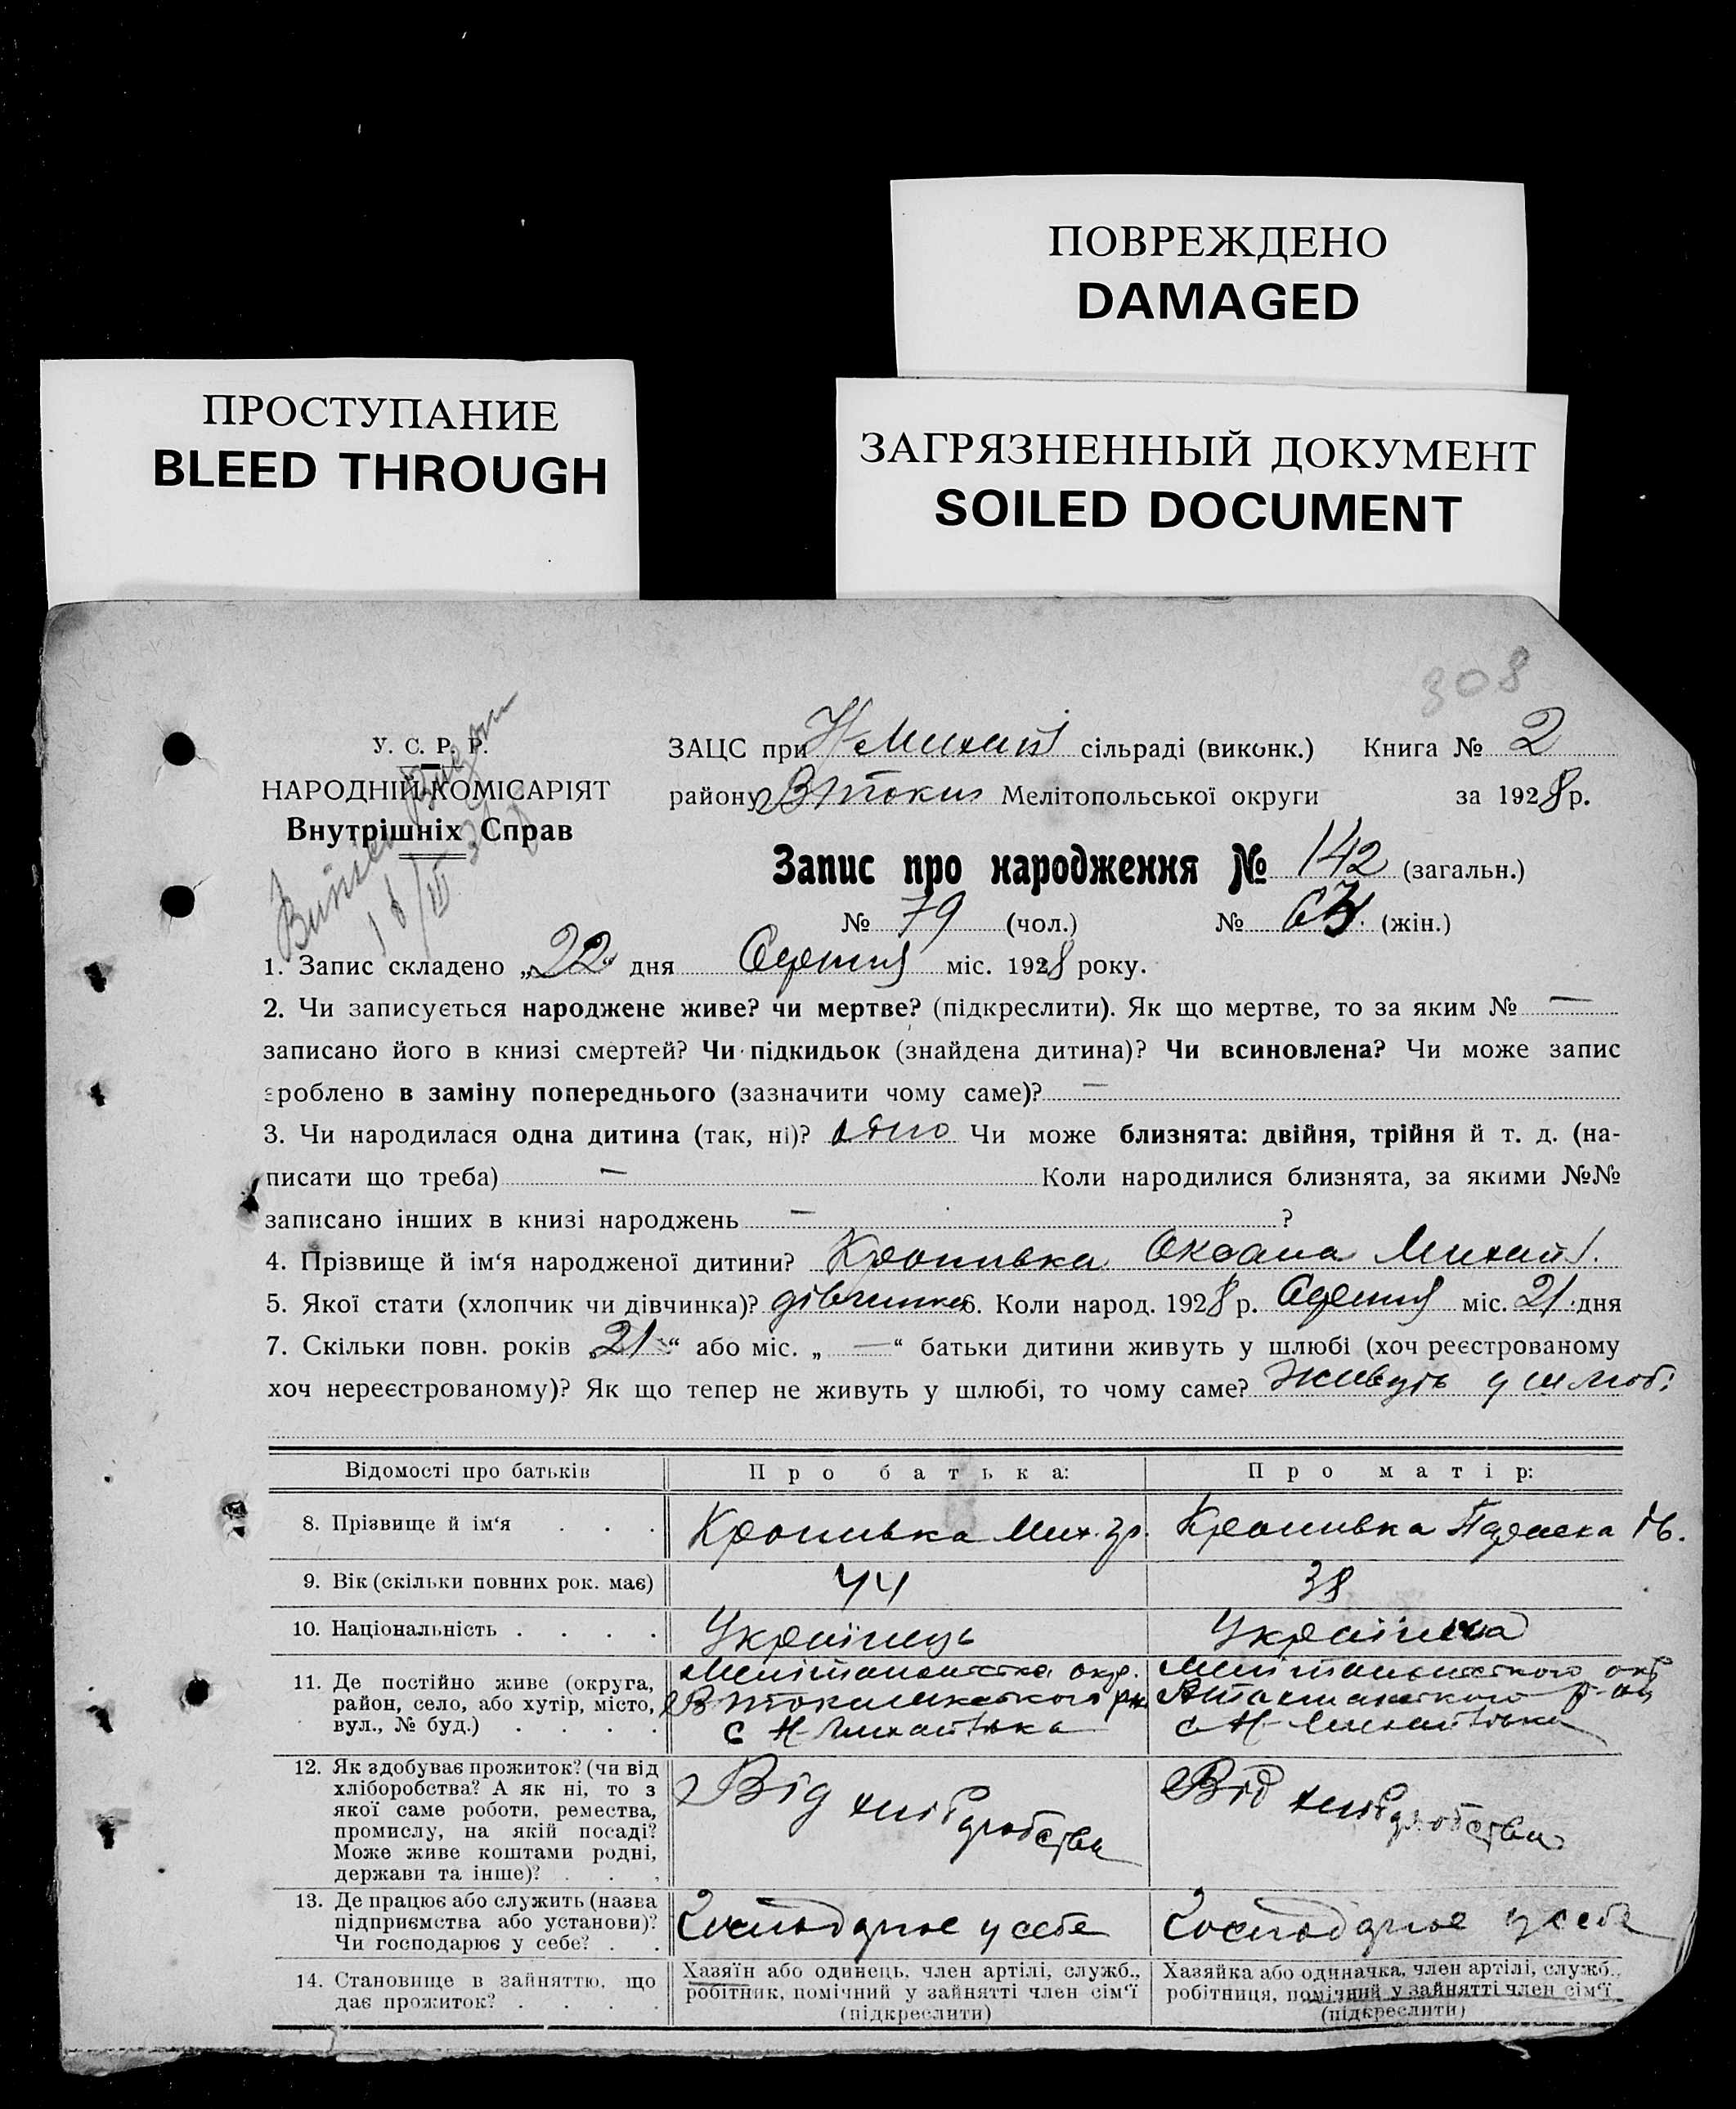 ПОВРЕЖДЕНО
DAMAGED
ПРОСТУПАНИЕ
BLEED THROUGH
ЗАГРЯЗНЕННЫЙ ДОКУМЕНТ
SOILED DOCUMENT
308
У. С. Р. Р.
НАРОДНІЙ КОМІСАРІЯТ
Внутрішніх Справ
ЗАЦС при Н-Михайл сільраді (виконк.) Книга № 2
району ВТокм Мелітопольської округи за 1928 р.
Запис про народження № 142 (загальн.)
№ 79 (чол.) № 63 (жін.)
1. Запис складено „22“ дня Серпня міс. 1928 року.
2. Чи записується народжене живе? чи мертве? (підкреслити). Як що мертве, то за яким № —
записано його в книзі смертей? Чи підкидьок (знайдена дитина)? Чи всиновлена? Чи може запис
зроблено в заміну попереднього (зазначити чому саме)? —
3. Чи народилася одна дитина (так, ні)? одно Чи може близнята: двійня, трійня й т. д. (на-
писати що треба) — Коли народилися близнята, за якими №№
записано інших в книзі народжень — ?
4. Прізвище й ім‘я народженої дитини? Кропивка Оксана Михайл.
5. Якої стати (хлопчик чи дівчинка)? дівчинка 6. Коли народ. 1928 р. Серпня міс. 21 дня
7. Скільки повн. років „21“ або міс. „ — “ батьки дитини живуть у шлюбі (хоч реєстрованому
хоч нереєстрованому)? Як що тепер не живуть у шлюбі, то чому саме? живуть у шлюбі
Відомості про батьків Про батька: Про матір:
8. Прізвище й ім‘я . . . Кропивка Мих. Гр. Кропивка Параска Ів.
9. Вік (скільки повних рок. має) 44 38
10. Національність . . . . Українець Українка
11. Де постійно живе (округа,
район, село, або хутір, місто,
вул., № буд.) . . . .
Мелітопольська окр.
В-Токмакського р-н
с Н-Михайлівка
Мелітопольського окр
ВТокмакського р-н
с Н-Михайлівка
12. Як здобуває прожиток? (чи від
хліборобства? А як ні, то з
якої саме роботи, ремества,
промислу, на якій посаді?
Може живе коштами родні,
держави та інше)? . . .
Від хліборобства
Від хліборобства
13. Де працює або служить (назва
підприємства або установи)?
Чи господарює у себе? . .
Господарює у себе
Господарює у себе
14. Становище в зайняттю, що
дає прожиток? . . . .
Хазяїн або одинець, член артілі, служб.,
робітник, помічний у зайнятті член сім‘ї
(підкреслити)
Хазяйка або одиначка, член артілі, служб.,
робітниця, помічний у зайнятті член сім‘ї
(підкреслити)